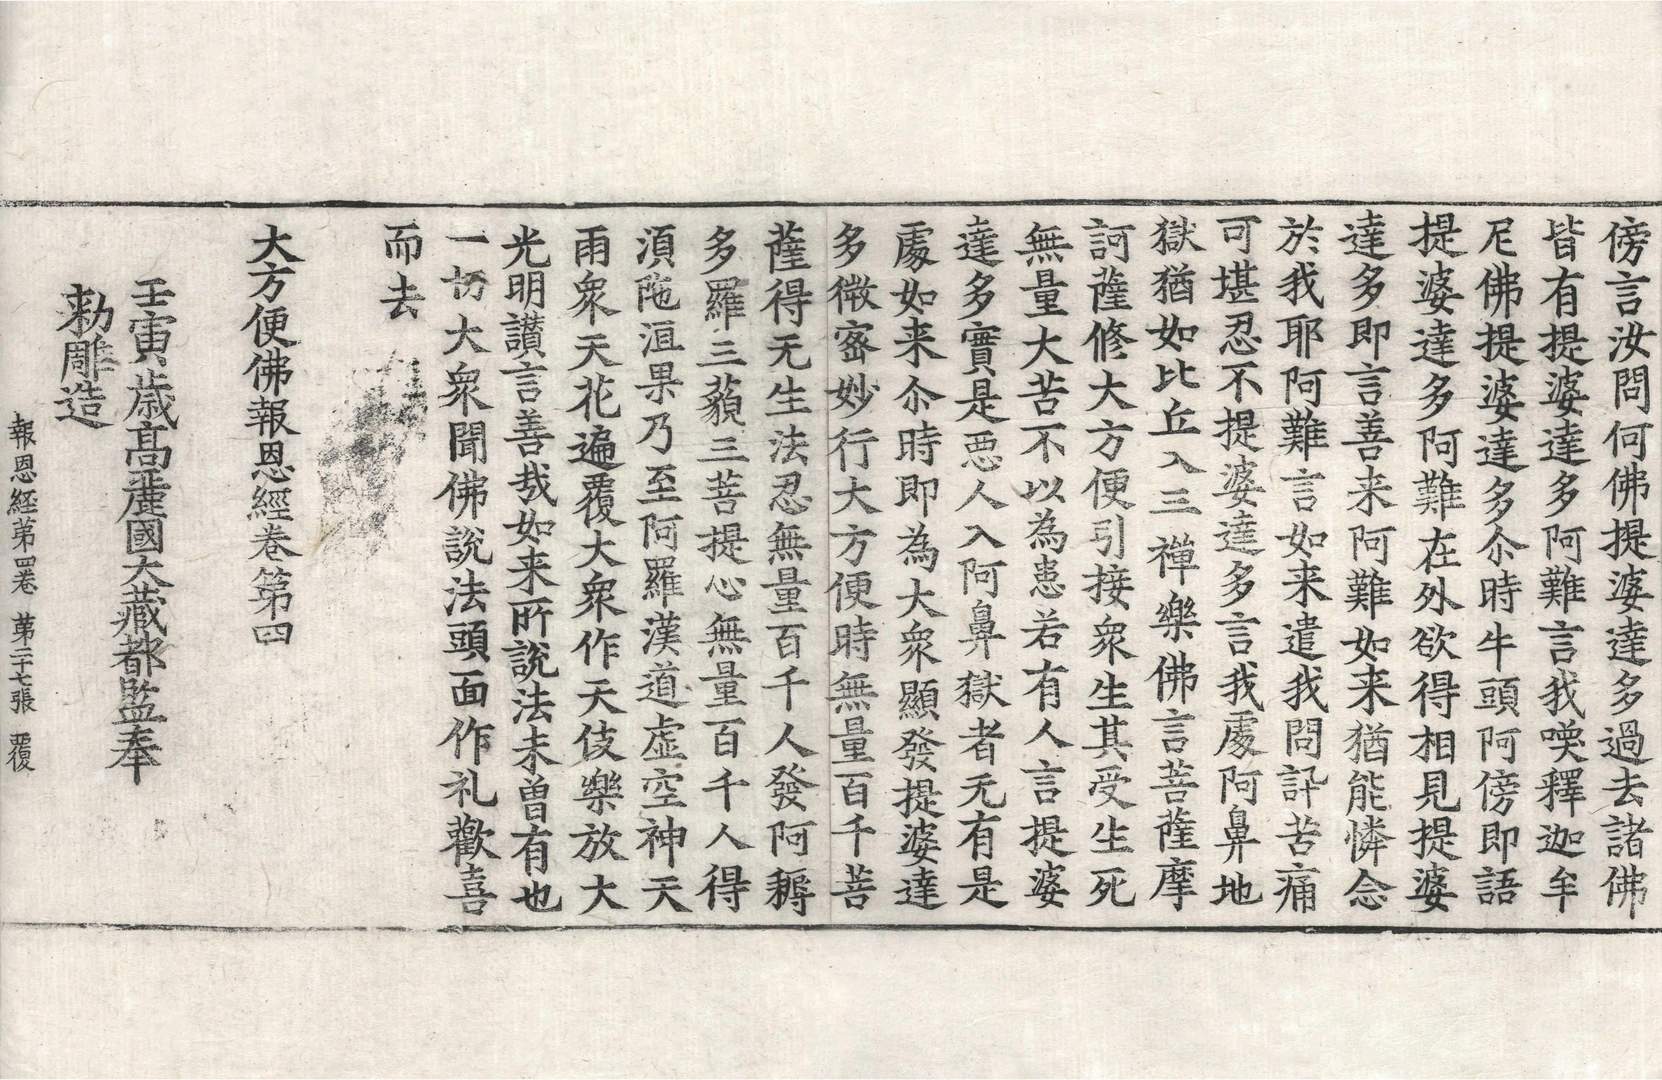 傍言汝問何佛提婆達多過去諸佛
皆有提婆達多阿難言我喚釋迦牟
尼佛提婆達多尒時牛頭阿傍即語
提婆達多阿難在外欲得相見提婆
達多即言善来阿難如来猶能憐念
於我耶阿難言如来遣我問訊苦痛
可堪忍不提婆達多言我處阿鼻地
獄猶如比丘入三禪樂佛言菩薩摩
訶薩修大方便引接衆生其受生死
無量大苦不以為患若有人言提婆
達多實是惡人入阿鼻獄者无有是
處如来尒時即為大衆顯發提婆達
多微密妙行大方便時無量百千菩
薩得无生法忍無量百千人發阿耨
多羅三藐三菩提心無量百千人得
湏陁洹果乃至阿羅漢道虛空神天
雨衆天花遍覆大衆作天伎樂放大
光明讃言善哉如来所說法未曾有也
一切大衆聞佛說法頭面作礼歡喜
而去
大方便佛報恩經卷第四
壬寅歲高麗國大藏都監奉
勑雕造
報恩經第四卷 第二十七張 覆